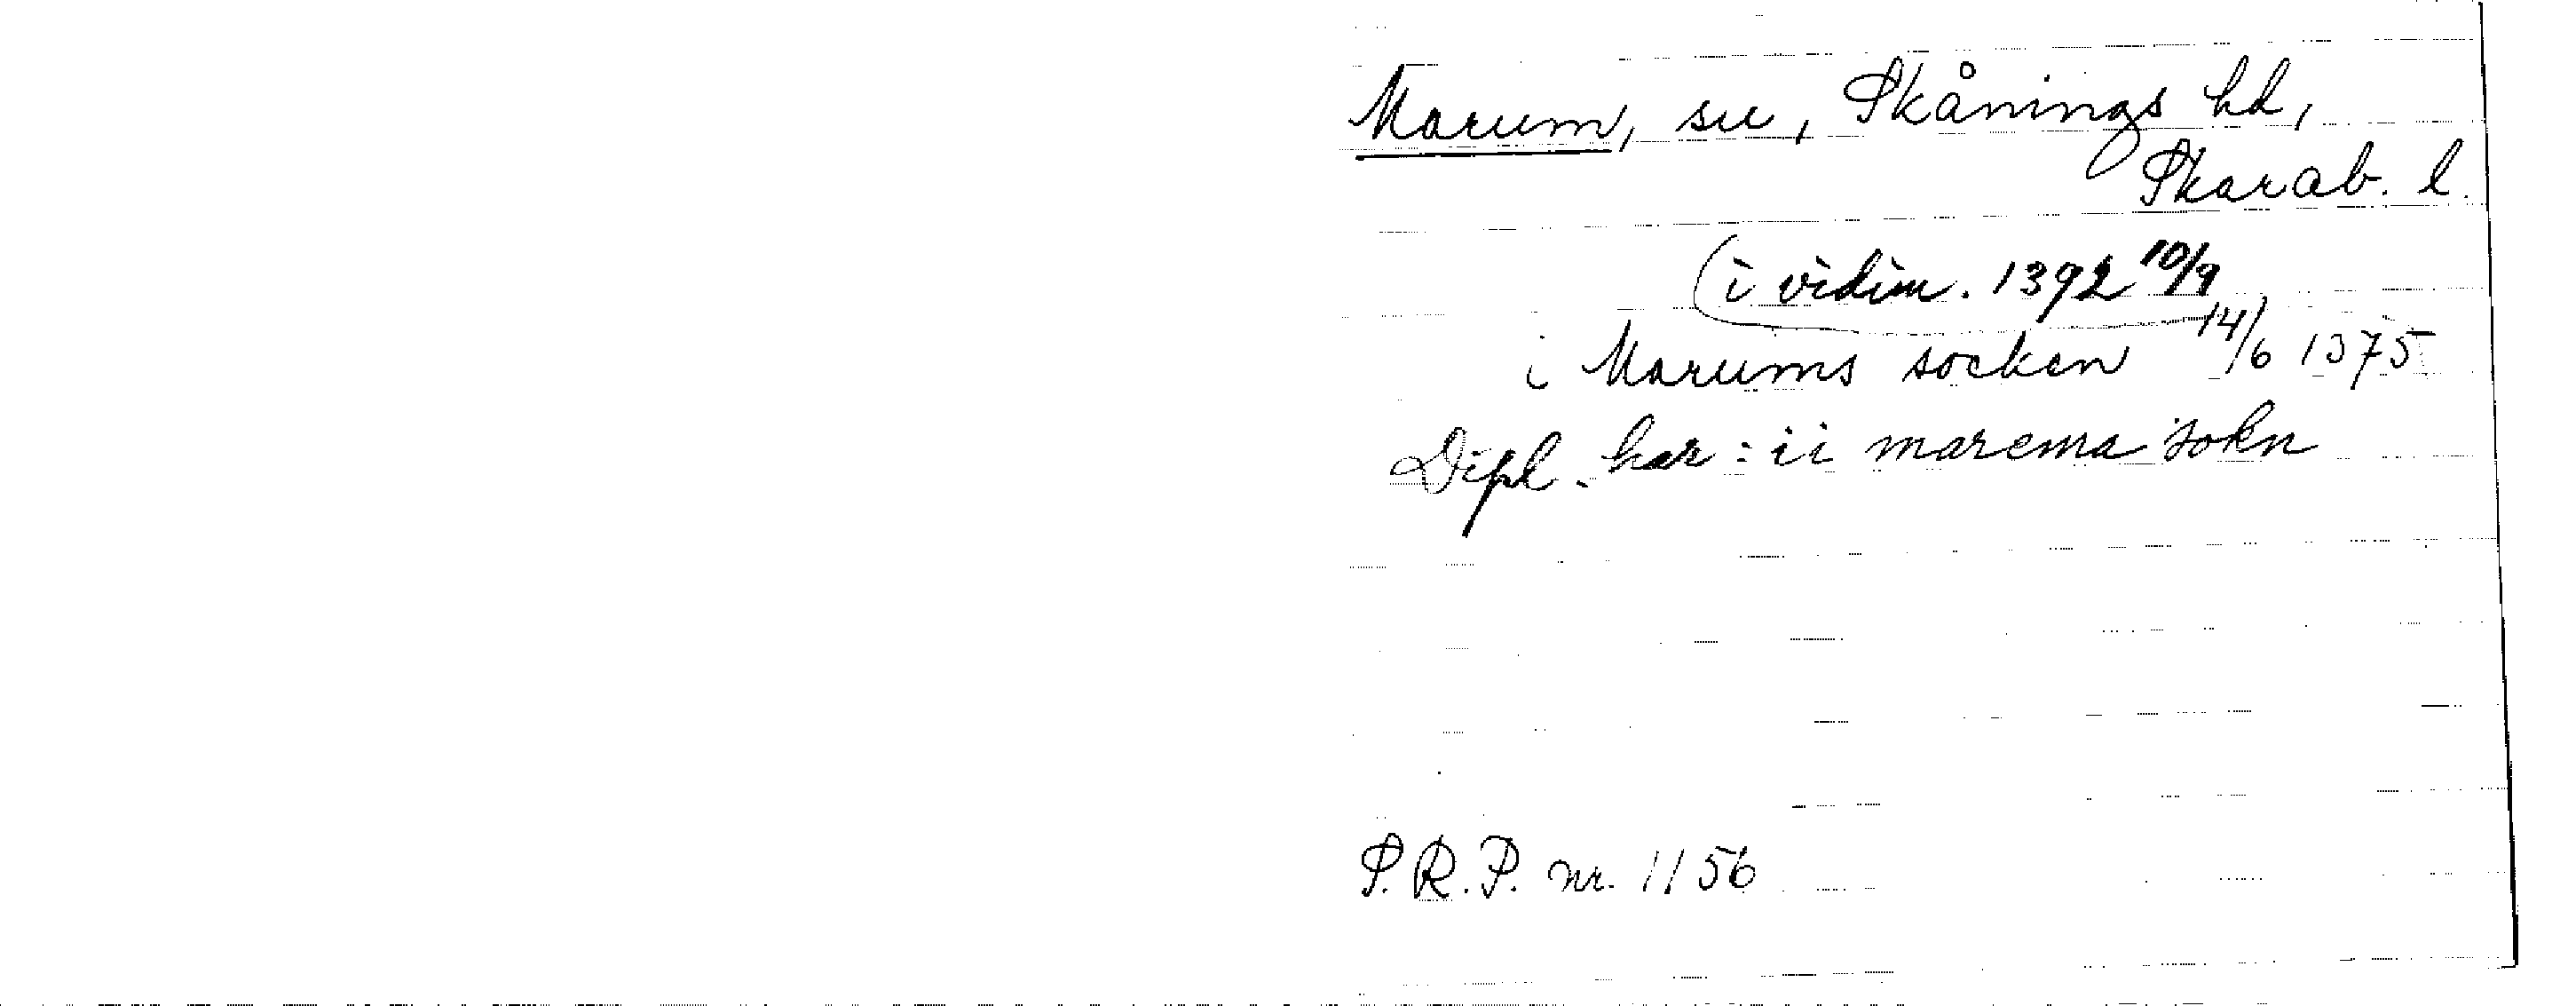 Marum, sn, Skånings hd,
Skarab. l.
(i vidim. 1392 10/9
i Marums socken 14/6 1375
Dipl. har: ii marema sokn
P.R.P. nr. 1156